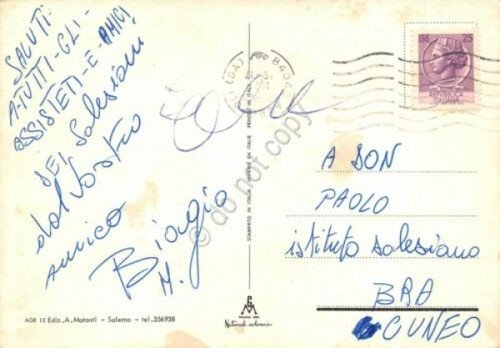 SALUTI
A TUTTI-GLI-
ASSISTETI-E AMICI
DEI Salesiani
dal Vostro
amico
Biagio
M.
A DON
PAOLO
istituto salesiano
BRA
CUNEO
LIRE 25
(SA)
STAMPATO IN ITALIA
PRINTED IN ITALY
AGR 13 Ediz. „A„ Matonti - Salerno - tel. 356938
Natural colours
do not copy